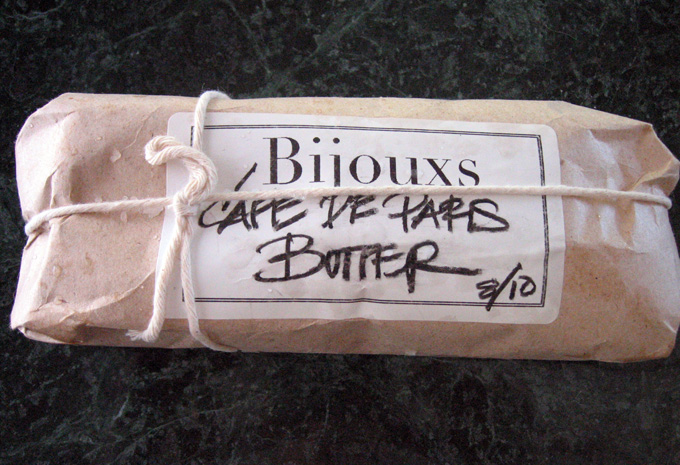 Bijouxs
CAFE DE PARIS
BUTTER
8/10